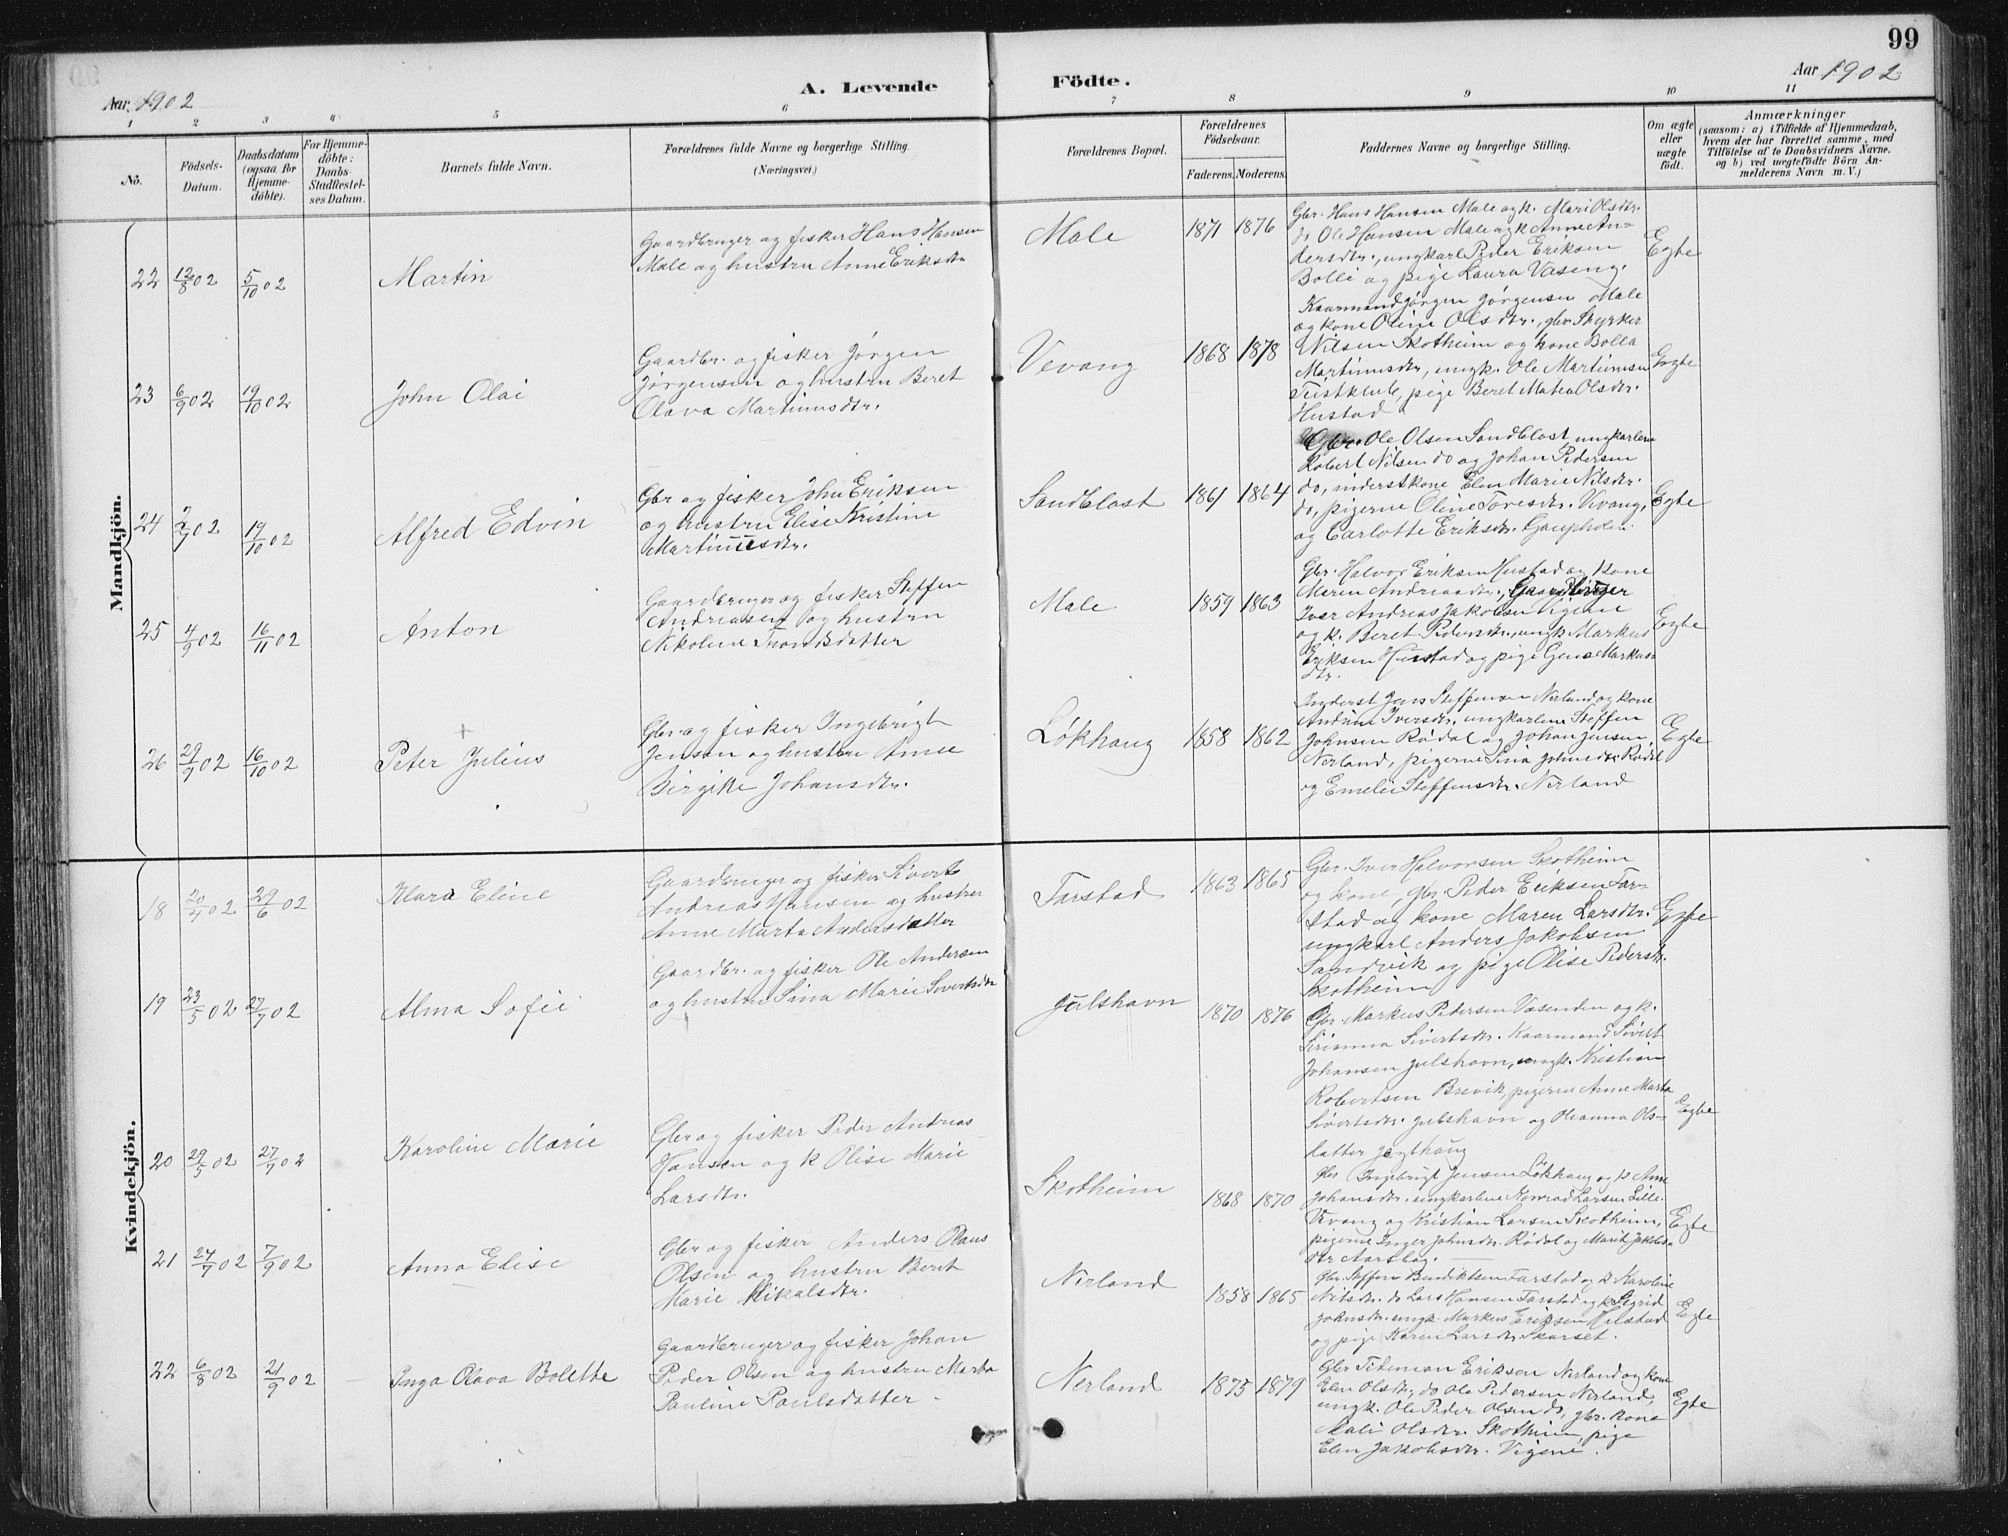 99
Aar 1902
A. Levende
Födte.
Aar 1902
1 2 3 4 5 6 7 8 9 10 11
No.
Födsels-
Datum.
Daabsdatum
(ogsaa for
Hjemme-
döbte).
For Hjemme-
döbte:
Daabs-
Stadfæstel-
ses Datum.
Barnets fulde Navn.
Forældrenes fulde Navne og borgerlige Stilling.
(Næringsvei.)
Forældrenes Bopæl.
Forældrenes
Födselsaar.
Faderens.
Moderens.
Faddernes Navne og borgerlige Stilling.
Om ægte
eller
uægte
födt.
Anmærkninger
(saasom: a) i Tilfælde af Hjemmedaab,
hvem der har forrettet samme, med
Tilföielse af to Daabsvidners Navne,
og b) ved uægtefödte Börn An-
melderens Navn m. V.)
Mandkjön.
22 12/8 02 5/10 02
Martin
Gaardbruger og fisker Hans Hansen
Male og hustru Anne Eriksdtr
Male
1871 1876
Gbr. Hans Hansen Male og k. Mari Olsdtr.
do Ole Hansen Male og k Anne An-
dersdtr., ungkarl Peder Eriksen
Bolli og pige Laura Vaseng.
Egte
23 6/9 02 19/10 02
John Olai
Gaardbr. og fisker Jørgen
Jørgensen og hustru Beret
Olava Martinusdtr.
Vevang
1868 1878
Kaarmand Jørgen Jørgensen Male
og kone Oline Olsdtr., gbr Styrker
Nilsen Skotheim og kone Bolla
Martinusdtr, ungk. Ole Martinusen
Teistklub, pige Beret Matea Olsdtr.
Hustad
Egte
24 2/7 02 19/10 02
Alfred Edvin
Gbr og fisker John Eriksen
og hustru Elise Kristine
Martinusdtr.
Sandblost
1861 1864
Gbr. Ole Olsen Sandblost, ungkarlene
Robert Nilsen do og Johan Pedersen
do, inderstkone Elen Marie Nilsdtr.
do, pigerne Oline Toresdtr. Vevang,
og Carlotte Eriksdtr. Gaupholm.
Egte
25 4/9 02 16/11 02
Anton
Gaardbruger og fisker Steffen
Andreasen og hustru
Nikoline Trondsdatter
Male
1859 1863
Gbr. Halvor Eriksen Hustad og kone
Maren Andreasdtr., Gaardbruger
Iver Andreas Jakobsen Vigene
og k. Beret Pedersdtr., ungk Markus
Eriksen Hustad og pige Gena Markus-
dtr.
Egte
26 29/9 02 16/10 02
Peter Julius
Gbr og fisker Ingebrigt
Jensen og hustru Anne
Birgite Johansdtr.
Løkhaug
1858 1862
Inderst Jens Steffensen Nerland og kone
Andrine Iversdtr., ungkarlene Steffen
Johnsen Rødal og Johan Jensen
Nerland, pigerne Sina Johnsdtr Rødal
og Emelie Steffensdtr. Nerland
Egte
Kvindekjön.
18 20/4 02 29/6 02
Klara Eline
Gaardbruger og fisker Sivert
Andreas Hansen og hustru
Anne Marta Andersdatter
Farstad
1863 1865
Gbr. Iver Halvorsen Skotheim
og kone, gbr Peder Eriksen Far-
stad og kone Maren Larsdtr.
ungkarl Anders Jakobsen
Sandvik og pige Olise Pedersdtr.
Skotheim
Egte
19 23/5 02 27/7 02
Alma Sofie
Gaardbr. og fisker Ole Andersen
og hustru Sina Marie Sivertsdtr
Julshavn
1870 1876
Gbr. Markus Pedersen Vasenden og k.
Serianna Sivertsdtr. Kaarmand Sivert
Johansen Julshavn, ungk. Kristian
Robertsen Brevik, pigerne Anne Marta
Sivertsdtr. Julshavn og Oleanna Ols-
datter Jegthaug
Egte
20 29/5 02 27/7 02
Karoline Marie
Gbr og fisker Peder Andreas
Hansen og k Olise Marie
Larsdtr.
Skotheim
1868 1870
Gbr Ingebrigt Jensen Løkhaug og k Anne
Johansdtr. ungkarlene Konrad Larsen Lille-
Vevang og Kristian Larsen Skotheim,
pigerne Inger Johnsdtr. Rødal og Marit Jakobs-
dtr Aarsbog.
Egte
21 24/7 02 7/9 02
Anna Elise
Gbr og fisker Anders Olaus
Olsen og hustru Beret
Marie Mikalsdtr.
Nerland
1858 1865
Gbr. Steffen Bendiktsen Farstad og k Karoline
Nilsdtr. do Lars Hansen Farstad og k Sigrid
Johnsdtr. ungk. Markus Eriksen Hustad
og pige Karen Larsdtr Skarset.
Egte
22 6/8 02 21/9 02
Inga Olava Bolette
Gaardbruger og fisker Johan
Peder Olsen og hustru Marta
Pauline Paulsdatter
Nerland
1875 1879
Gbr Tideman Eriksen Nerland og kone
Elen Olsdtr, do Ole Pedersen Nerland,
ungk. Ole Peder Olsen do, gbr. kone
Mali Olsdtr. Skotheim, pige
Elen Jakobsdtr. Vigene
Egte